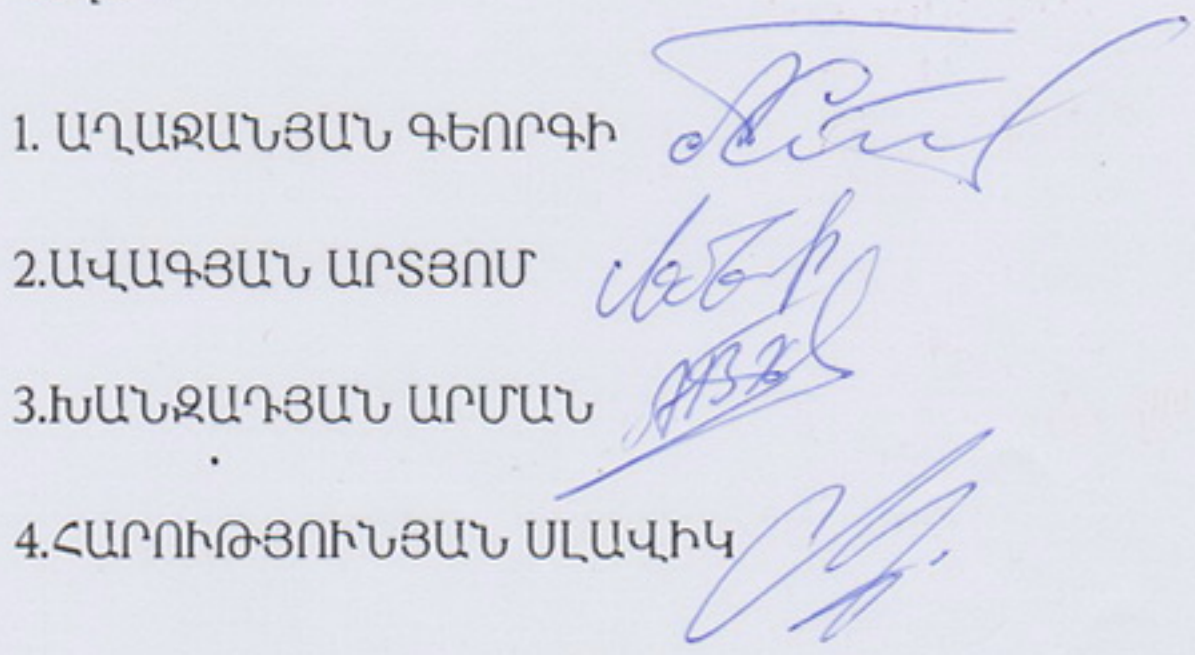 1. ԱՂԱՋԱՆՅԱՆ ԳԵՈՐԳԻ
2.ԱՎԱԳՅԱՆ ԱՐՏՅՈՄ
3.ԽԱՆԶԱԴՅԱՆ ԱՐՄԱՆ
4.ՀԱՐՈՒԹՅՈՒՆՅԱՆ ՍԼԱՎԻԿ